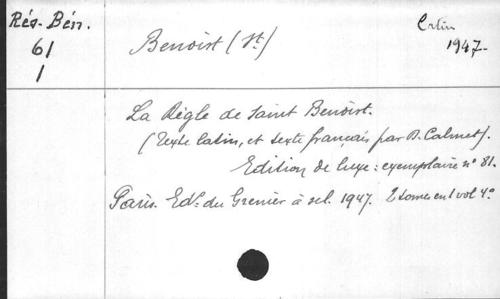 Rés. Bén.
61
1
Benoist (St)
1947.
La Règle de Saint Benoist.
(Texte latin, et texte français par D. Calmet).
Edition de luxe: exemplaire n° 81.
Paris. Ed. du Grenier à sel. 1947. 2 tomes en 1 vol 4°